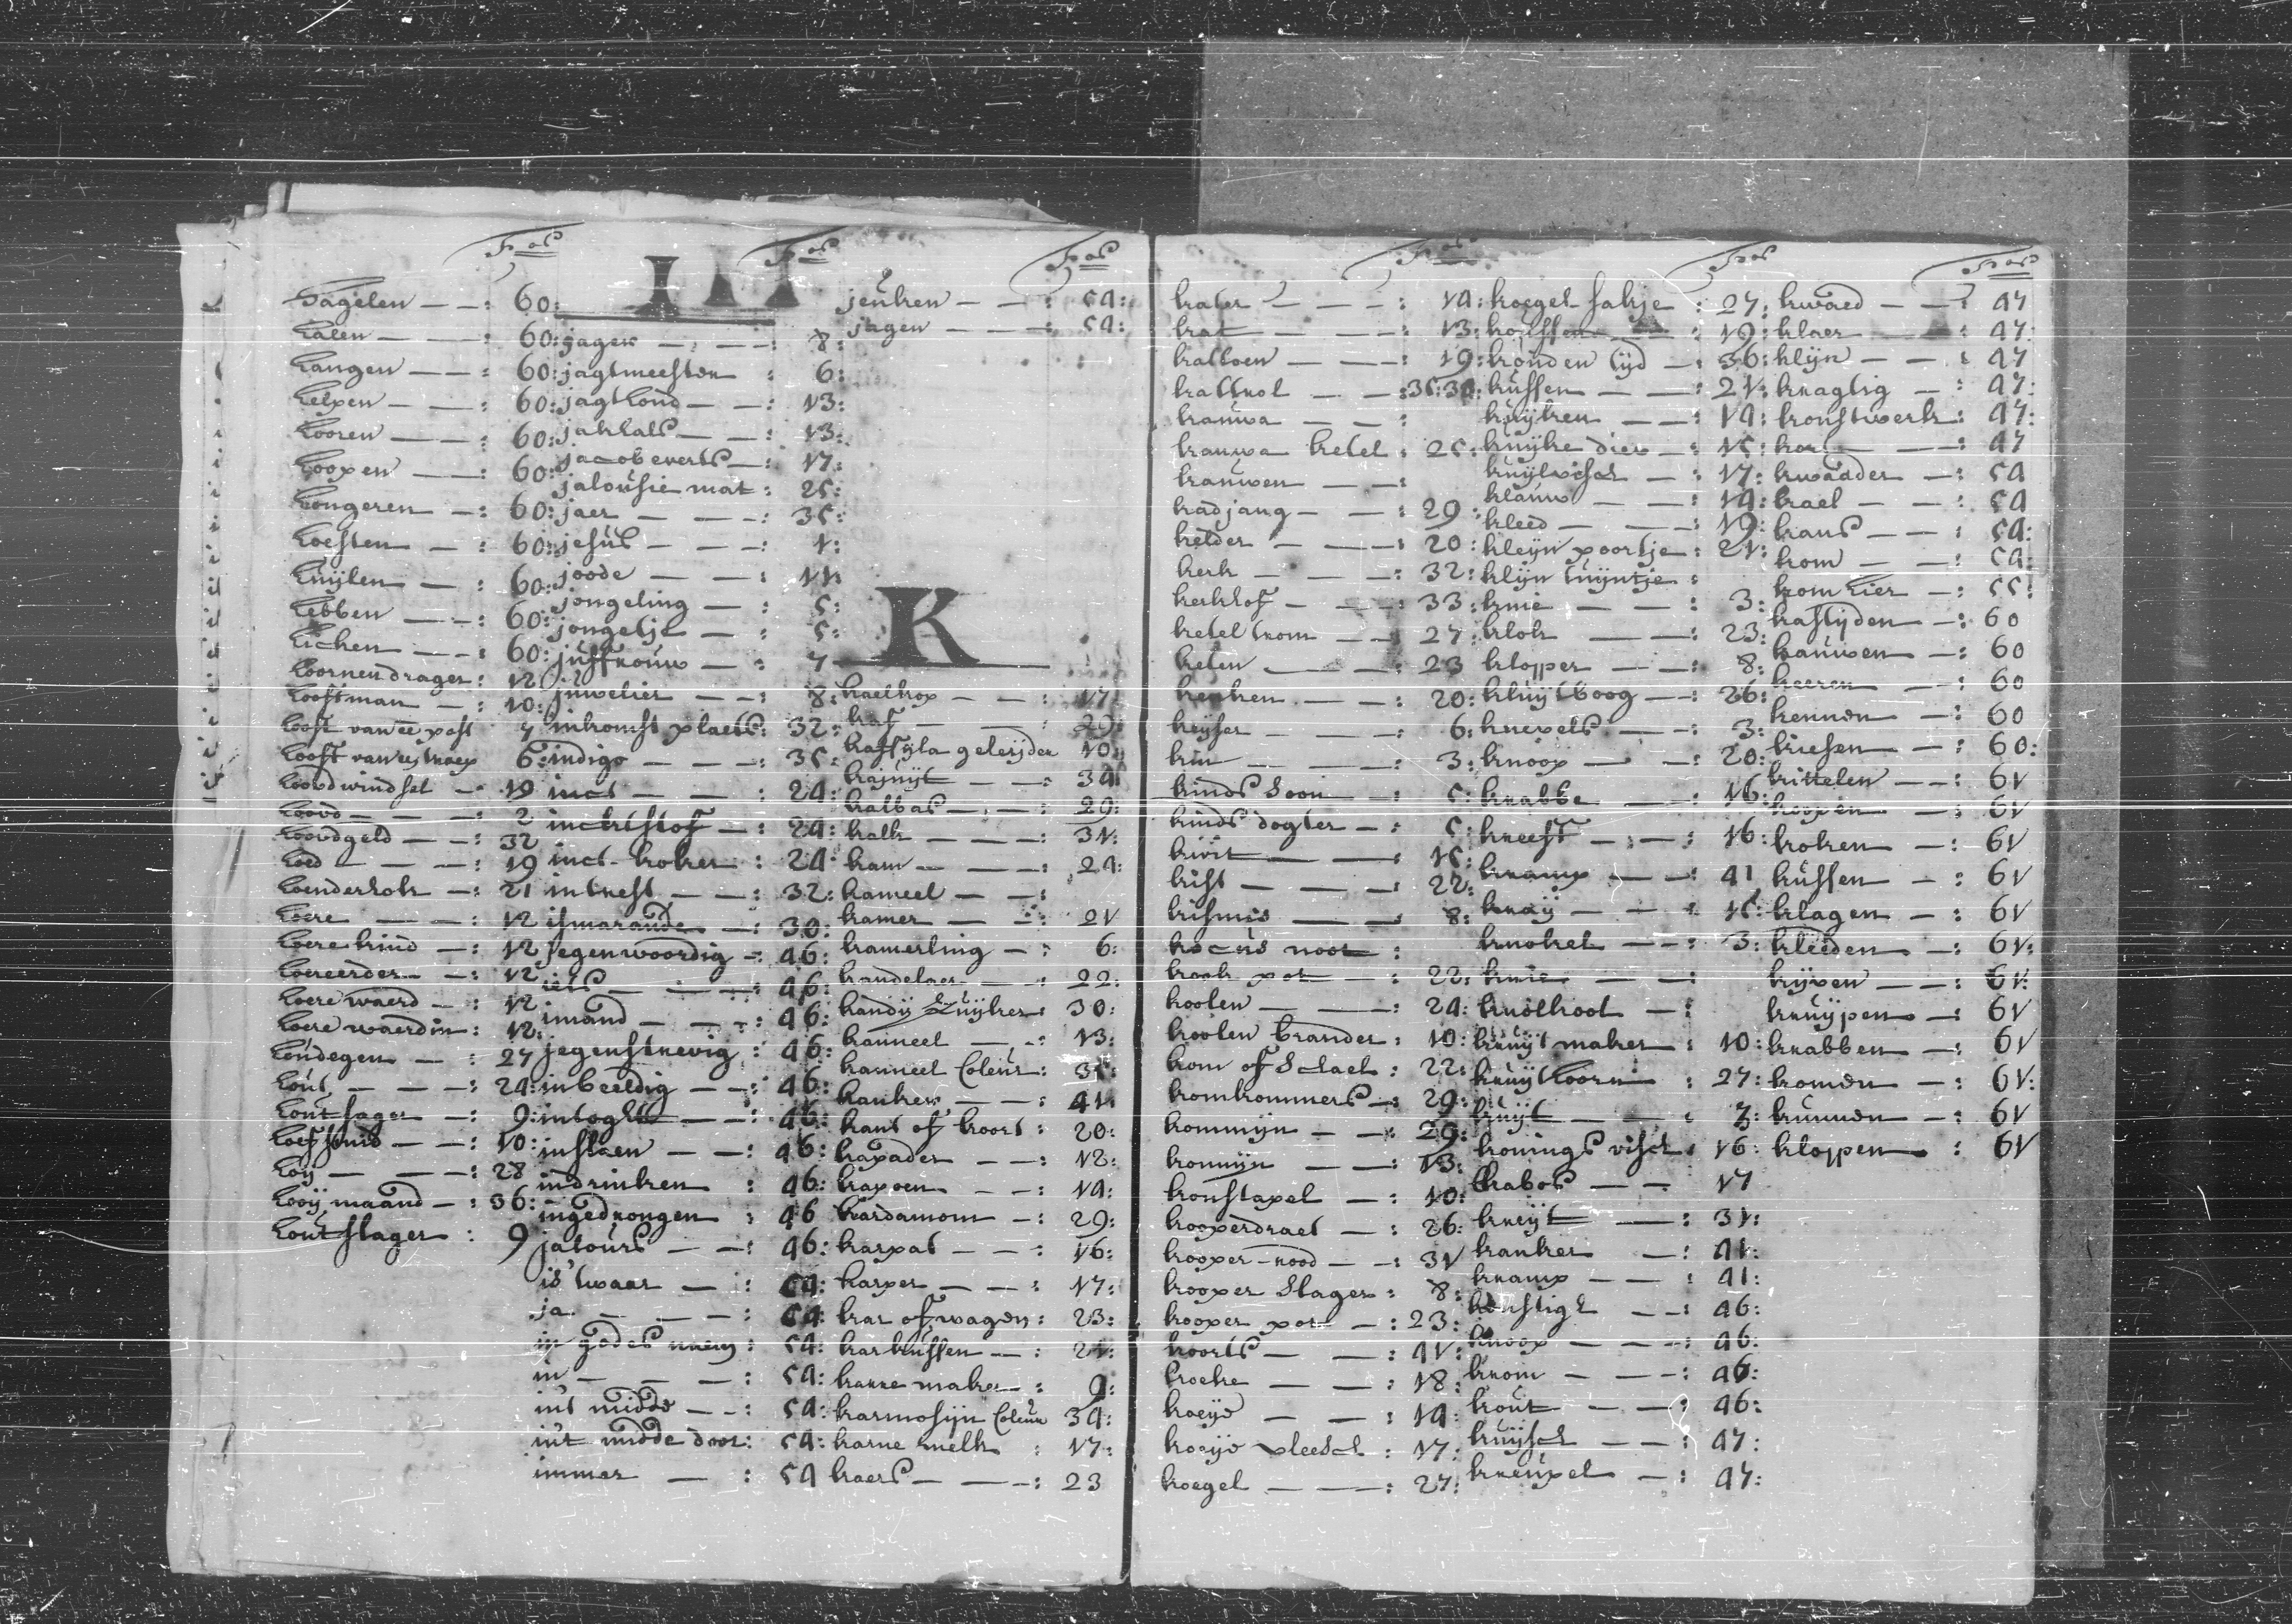 Fos
hagelen — — : 60:
halen — — : 60:
hangen — — : 60:
helpen — — : 60:
hooren — — : 60:
hoopen — — : 60:
hongeren — : 60:
hoesten — : 60:
huijlen — : 60:
hebben — — : 60:
hicken — — : 60:
hoornendrager : 12
hooftman — : 10:
hooft van ee post 7
6:
19
hoovd — — — : 2
hoovdgeld — — : 32
hoed — — — : 19
hoenderhok — : 21
hoere — — : 12
hoere kind — : 12
12
hoere waerd — : 12
hoere waerdin : 12:
houdegen — : 27
hout — — — : 24:
hout sager — : 9:
hoefsmid — — : 10:
hoij — — — : 28
hooij maand — : 36:
hout slager : 9
I
Fos
jager — — — : 8:
jagtmeester : 6:
jagthond — — : 13:
jakhals — — : 13:
jacob everts — : 17:
jalousie mat : 25:
jaer — — — : 35:
jesus — — — : 1:
joode — — : 11:
jongeling — : 5:
jongetje — : 5:
juffrouw — : 7
juwelier — — : 8:
inkomst plaets : 32:
indigo — — — : 35:
inct — — : 24:
24:
inct-koker : 24
intrest — — : 32:
ismaraude — : 30:
jegenwoordig — : 46:
iets — — — : 46:
imand — — : 46:
jegenstrevig : 46:
inbeeldig — — : 46:
intogt — — : 46:
inslaen — — : 46:
indrinken : 46:
ingedrongen : 46
jalours — — : 46:
is 't waar — : 54:
ja — — — : 54:
in godes naem : 54:
in — — — : 54:
int midde — — : 54:
in't midde door : 54:
immer — : 54
Fos
jeuken — — : 54:
jagen — — — : 54:
K
kaelkop — — : 17:
kaf — — — : 29:
kaffijla geleijder 10:
kajuijt — — : 34:
kalbas — — : 29:
kalk — — — : 31:
kam — — — : 24:
kameel — — :
kamer — — : 21
kamerling — : 6:
kandelaer — — : 22:
kandij Suijker : 30:
kanneel — — : 13:
kanneel Coleur : 35:
kanker — — : 41:
kant of boort : 20:
kapader — — : 12:
kapoen — — : 14:
kardamom — : 29:
karpat — — : 16:
karper — — : 17:
kar of wagen : 23:
karkussen — : 21:
karre maker — : 9:
karmosijn Coleur 34:
karne melk : 17:
kaers — — : 23
Fos
kater — — — : 14:
kat — — — : 13:
kattoen — — : 19:
kattrol — — : 35:34:
kauwa — — :
kauwa ketel : 25:
kauwen — — :
kadjang — — : 29:
kelder — — — : 20:
kerk — — — : 32:
kerkhof — — : 33:
ketel trom — — : 27:
keten — — — : 23
keuken — — : 20:
keijser — — — : 6:
kin — — — : 3:
kinds Soon — : 5:
kinds dogter — : 5:
kivit — — : 15:
kist — — — : 22:
kismis — — : 8:
kocus noot :
kook pot — : 22:
koolen — — : 24:
koolen brander : 10:
kom of Schael : 22:
komkommers — : 29:
kommijn — — : 29:
konnijn — — : 13:
konstapel — : 10:
kooperdraet — : 26:
kooper-rood — — : 31
kooper Slager : 8:
kooper pot — : 23:
koorts — — : 41:
koeke — — : 18:
koeijd — — : 14:
koeijd vleesch : 17:
koegel — — : 27:
Fos
koegel-sakje : 27:
koussen — — : 19:
konden tijd — : 36:
kussen — — : 21:
kuijken — — : 14:
kruijke dier — : 15:
kuijlvisch — : 17:
klauw — — : 14:
kleed — — — : 19:
kleijn poortje : 21:
klijn tuijntje :
knie — — — : 3:
klok — — : 23:
klopper — — : 8:
kluijt boog — : 26:
knevels — — : 3:
knoop — — : 20:
krabbe — — : 16:
kreeft — — : 16:
kramp — — : 41
kraij — — : 15:
knokel — — : 3:
knie — — :
knolkool — :
kruijt maker : 10:
kruijthoorn : 27:
kruijt — — : 3:
konings visch : 16:
krabos — — 17
krijt — — : 31:
kanker — : 41:
kramp — — : 41:
konstigh — — : 46:
knoop — — — : 46:
krom — — — : 46:
kout — — — : 46:
kuijsch — — : 47:
kreupel — : 47:
Fos
kwaed — — : 47
klaer — — : 47:
klijn — — : 47
kragtig — : 47:
konstwerk : 47:
kort — — : 47
kwaader — : 54
kael — — : 54
kans — — : 54:
kom — — : 54:
kom hier — : 55:
kastijden — : 60
kauwen — : 60
keeren — : 60
kennen — : 60
kiesen — : 60:
kittelen — — : 61
koopen — : 61
koken — : 61
kussen — : 61
klagen — : 61
kleeden — : 61:
kijven — — : 61:
kruijpen — : 61
krabben — : 61
komen — : 61:
kunnen — : 61
kloppen — : 61